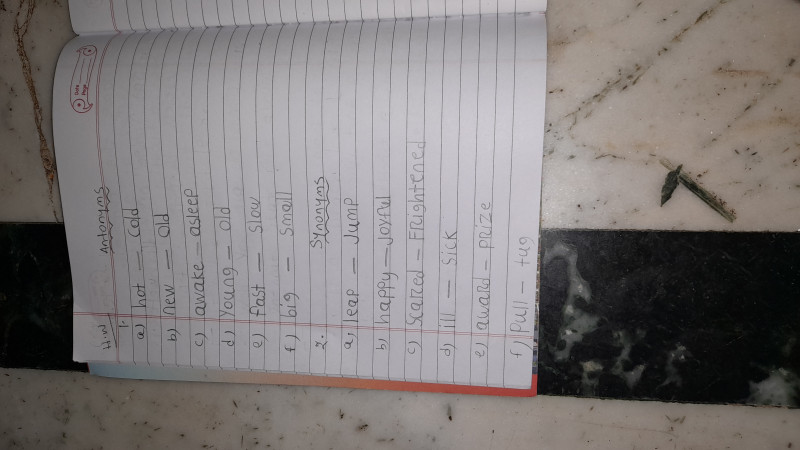 H.W
Antonyms
1.
a) hot — Cold
b) new — Old
c) awake — asleep
d) Young — Old
e) Fast — Slow
f) big — Small
2. Synonyms
a) leap — Jump
b) happy — Joyful
c) ScaRed — FRightened
d) ill — Sick
e) awaRd — pRize
f) pull — tug